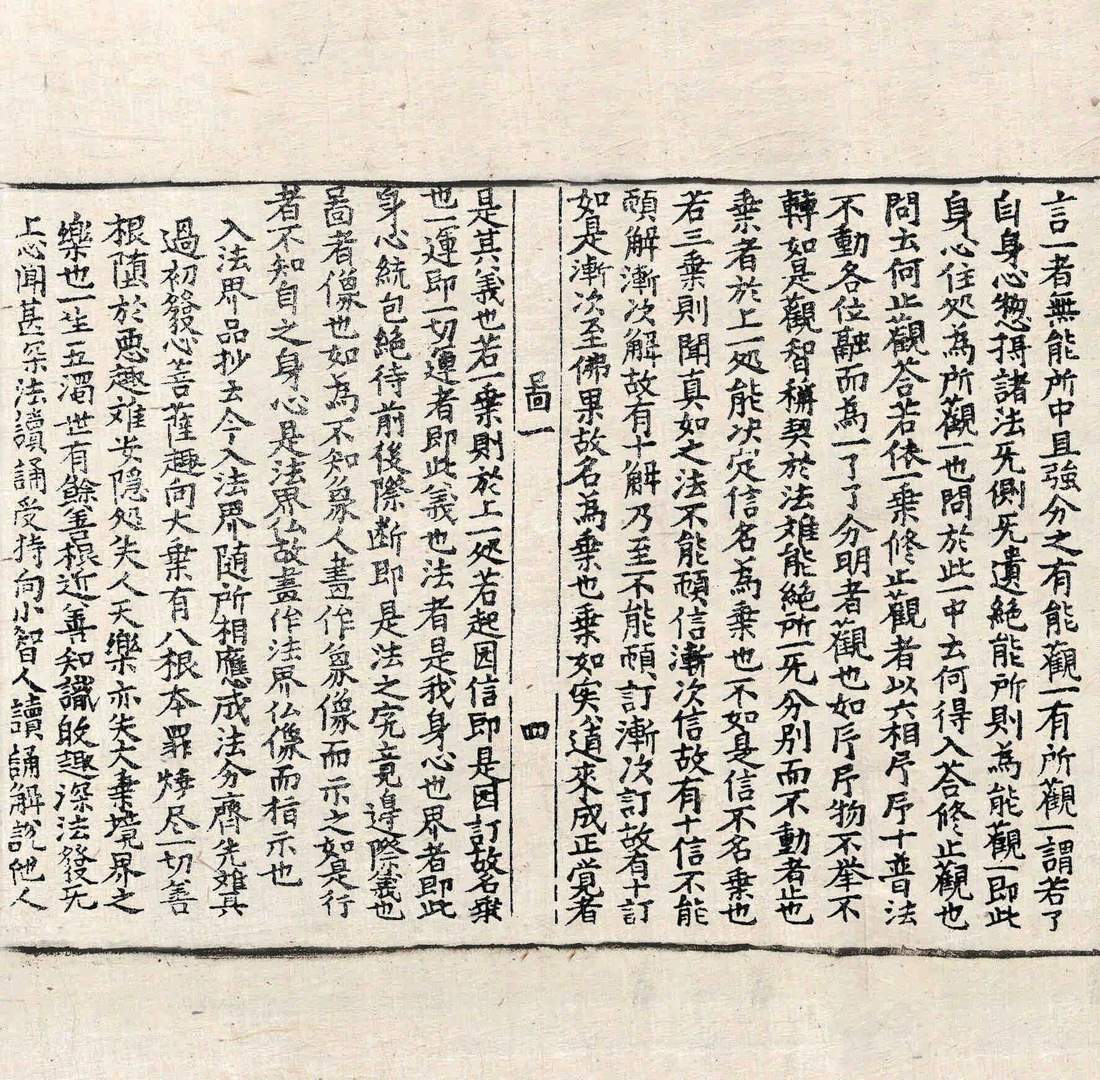 言一者無能所中且強分之有能觀一有所觀一謂若了
自身心惣揽諸法旡側旡遺絶能所則為能觀一即此
身心住処為所觀一也問於此一中云何得入荅修止觀也
問云何止觀荅若依一乗修止觀者以六相序序十普法
不動各位融而為一了了分明者觀也如序序物不举不
轉如是觀智稱契於法难能絶所一旡分別而不動者止也
乗者於上一処能决㝎信名為乗也不如是信不名乗也
若三乗則聞真如之法不能頓信漸次信故有十信不能
頓解漸次解故有十解乃至不能頓訂漸次訂故有十訂
如是漸次至佛果故名為乗也乗如矣道來成正覚者
啚一 四
是其義也若一乗則於上一処若起因信即是因訂故名乗
也一運即一切運者即此義也法者是我身心也界者即此
身心統包絶待前後際断即是法之究竟邊際義也
啚者像也如為不知象人畫作象像而示之如是行
者不知自之身心是法界仏故畫作法界仏像而指示也
入法界品抄云今入法界随所相應成法分齊先难其
過初發心菩薩趣向大乗有八根本罪燒尽一切善
根随於悪趣难安隠処失人天樂亦失大乗境界之
樂也一生五濁世有餘善根近善知識敢趣深法發旡
上心聞甚深法讀誦受持向小智人讀誦解說他人